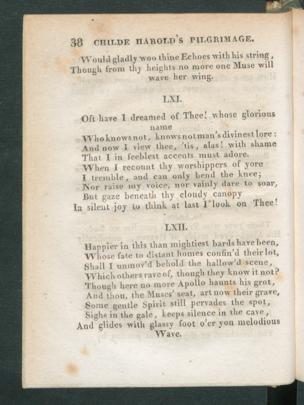 38 CHILDE HAROLD'S PILGRIMAGE.
Would gladly woo thine Echoes with his string,
Though from thy heights no more one Muse will
wave her wing.
LXI.
Oft have I dreamed of Thee! whose glorious
name
Who knows not, knows not man's divinest lore:
And now I view thee, 'tis, alas! with shame
That I in feeblest accents must adore.
When I recount thy worshippers of yore
I tremble, and can only bend the knee;
Nor raise my voice, nor vainly dare to soar,
But gaze beneath thy cloudy canopy
In silent joy to think at last I look on Thee!
LXII.
Happier in this than mightiest bards have been,
Whose fate to distant homes confin'd their lot,
Shall I unmov'd behold the hallow'd scene,
Which others rave of, though they know it not?
Though here no more Apollo haunts his grot,
And thou, the Muses' seat, art now their grave,
Some gentle Spirit still pervades the spot,
Sighs in the gale, keeps silence in the cave,
And glides with glassy foot o'er yon melodious
Wave.